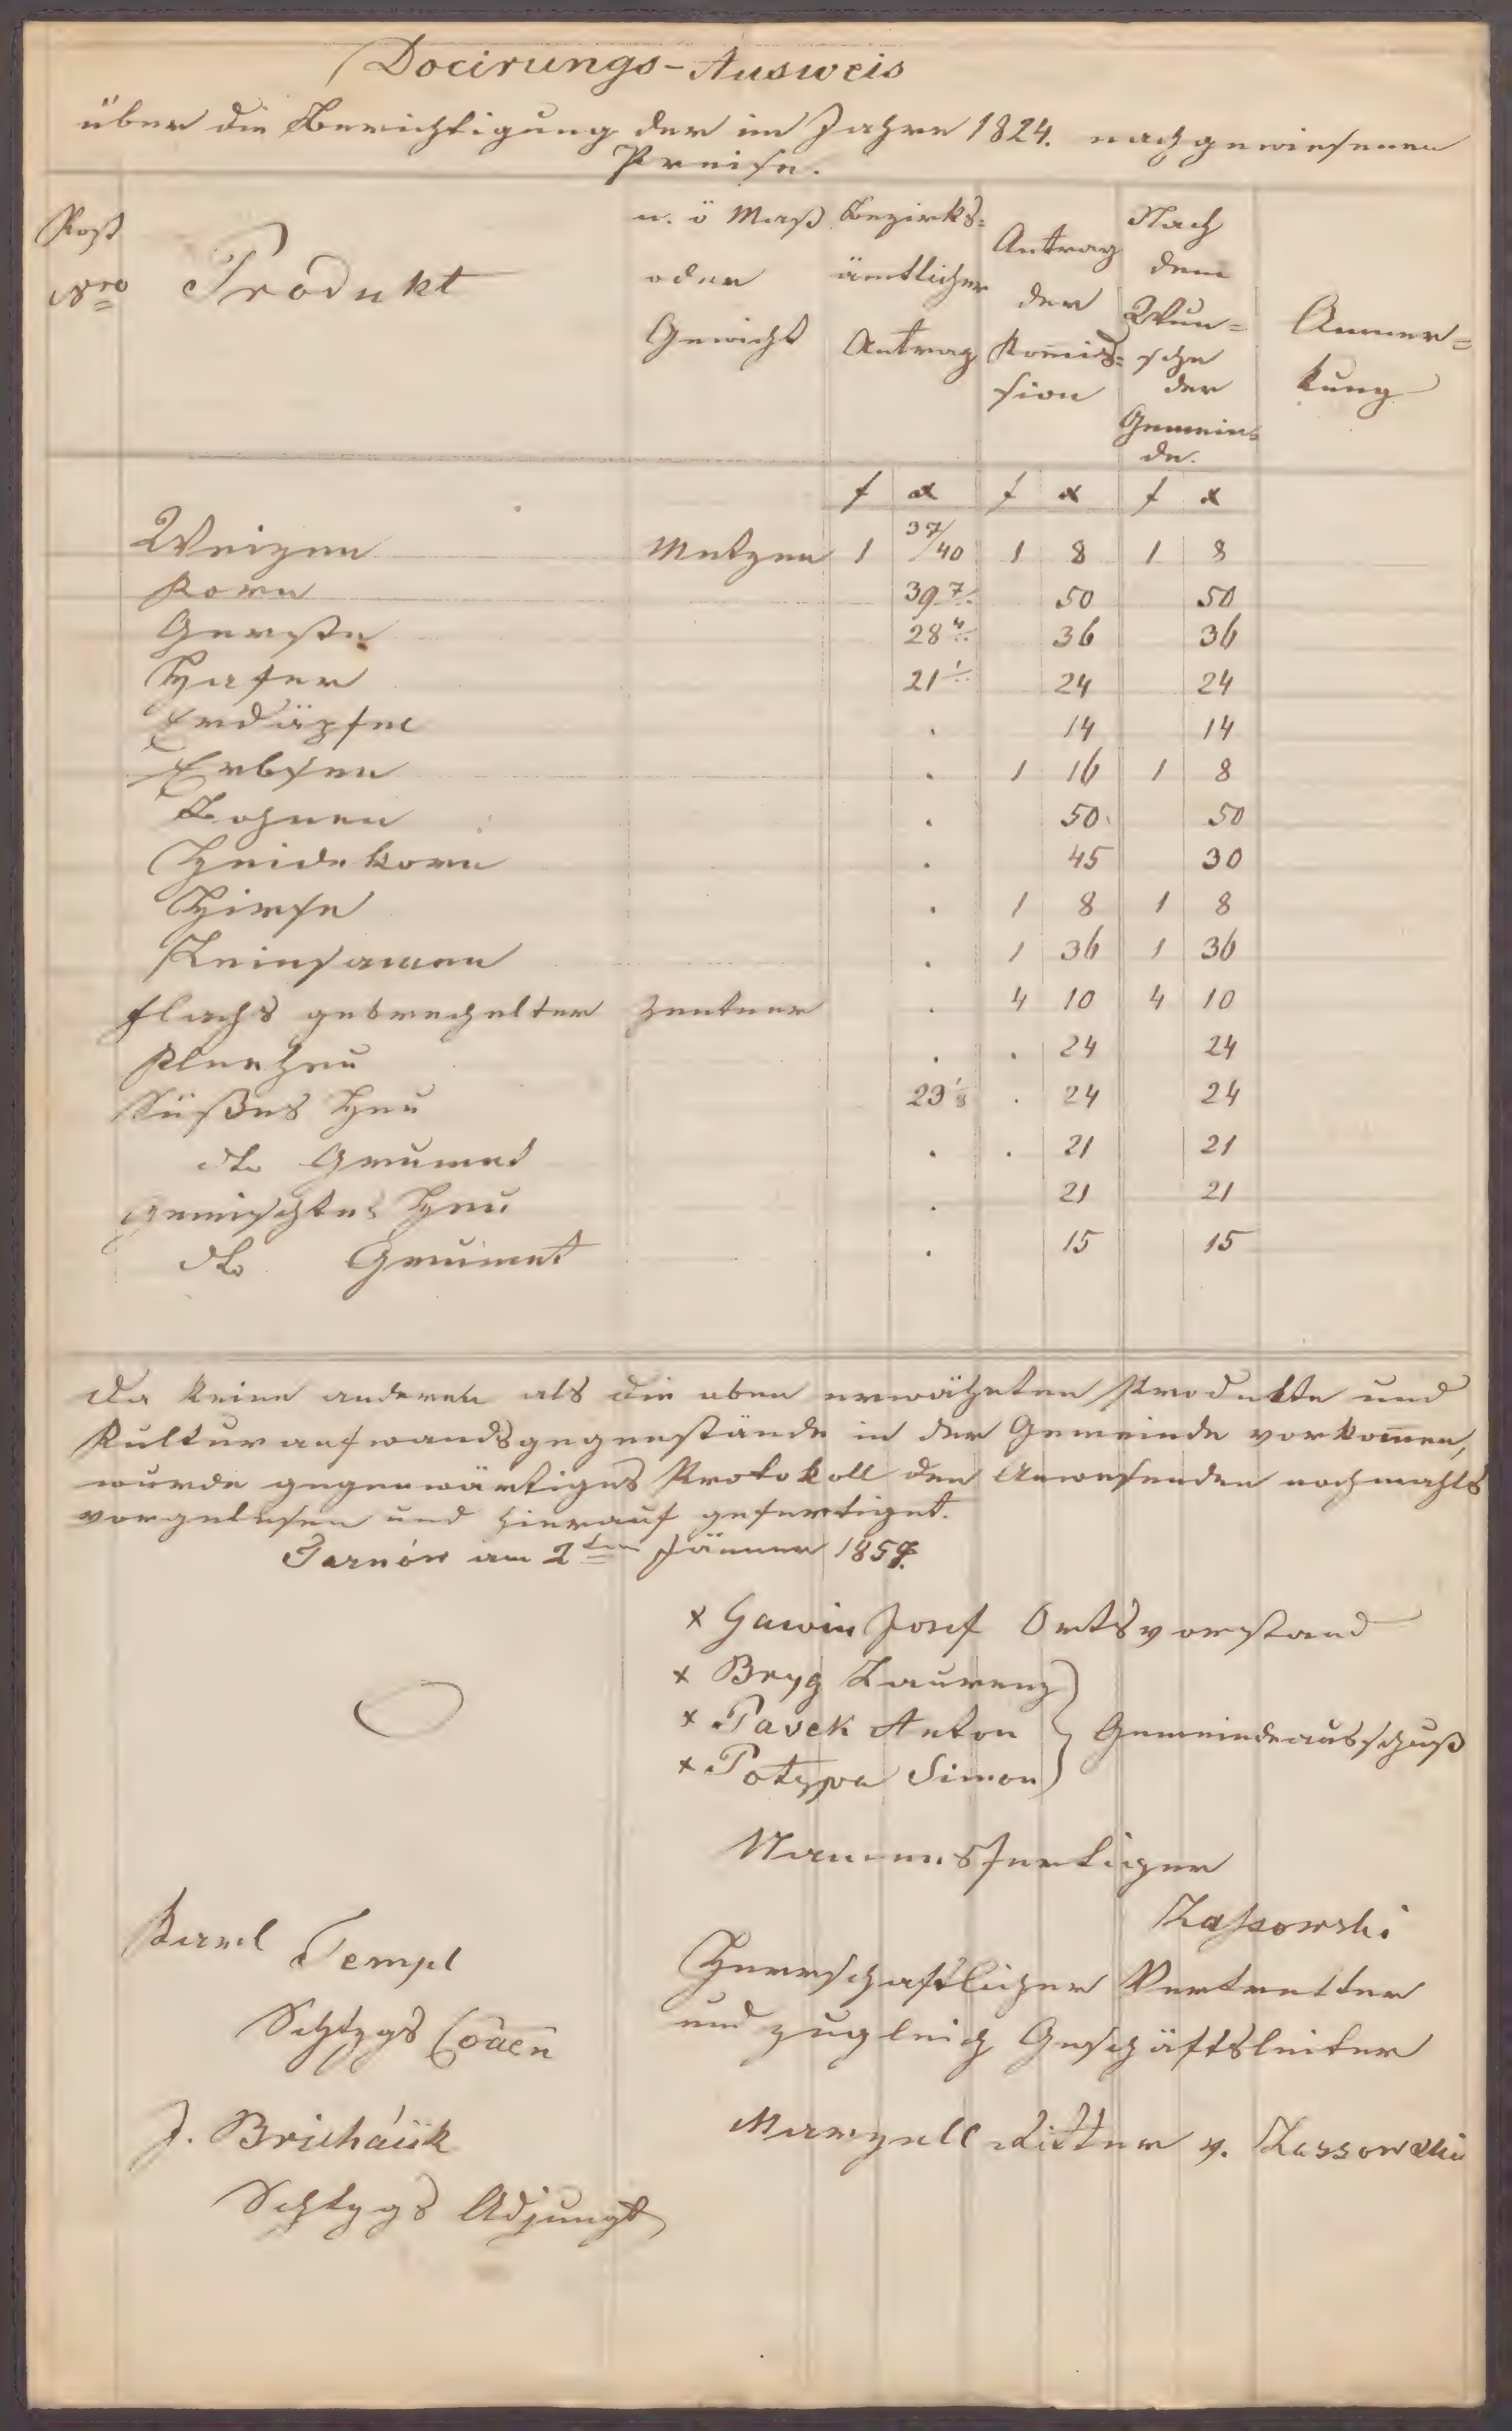 Docirungs-Ausweis
über die Berichtigung der im Jahre 1824. nachgewiesenen
Preise.
Post Nro | Produkt | n. ö Maß oder Gewicht | Bezirks: ämtlicher Antrag | Antrag der Kom̄is: sion | Nach dem Wun= sche der Gemein: de. | Anmer= kung
f x f x f x
Weizen Metzen 1 37/40 1 8 1 8
Korn 39 7/.. 50 50
Gerste 28 4/.. 36 36
Hafer 21 1/.. 24 24
Erdäpfel . 14 14
Erbsen . 1 16 1 8
Bohnen . 50 50
Heidekorn . 45 30
Hirse . 1 8 1 8
Leinsamen . 1 36 1 36
Flachs gebrechelter Zentner . 4 10 4 10
Kleeheu . . 24 24
Süßes Heu 23 1/8 . 24 24
dto Grumet . . 21 21
gemischtes Heu . 21 21
dto Grumet . 15 15
Da keine anderen als die oben erwähnten Produkte und
Kulturaufwandsgegenstände in der Gemeinde vorkom̄en,
wurde gegenwärtiges Protokoll den Anwesenden nochmahls
vorgelesen und hierauf gefertiget.
Tarnów am 2ten Jänner 1857.
x Gawin Josef Ortsvorstand
x Bryg Laurenz
x Pasek Anton } Gemeindeausschuß
x Potypa Simon
Namensfertiger
Zassowski
Karl Templ
Herrschaftlicher Vertretter
Schtzgs Coaen
und zugleich Geschäftsleiter
J. Bricháček
Marzell Ritter v. Zassowski
Schtzgs Adjungt